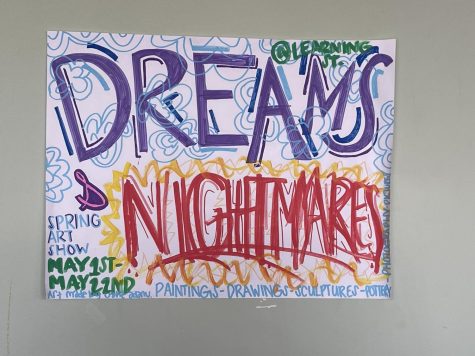 @LEARNING
ST.
DREAMS
&
NIGHTMARES
SPRING
ART
SHOW
MAY 1ST-
MAY 22ND
Art made by
PAINTINGS-DRAWINGS-SCULPTURES-POTTERY